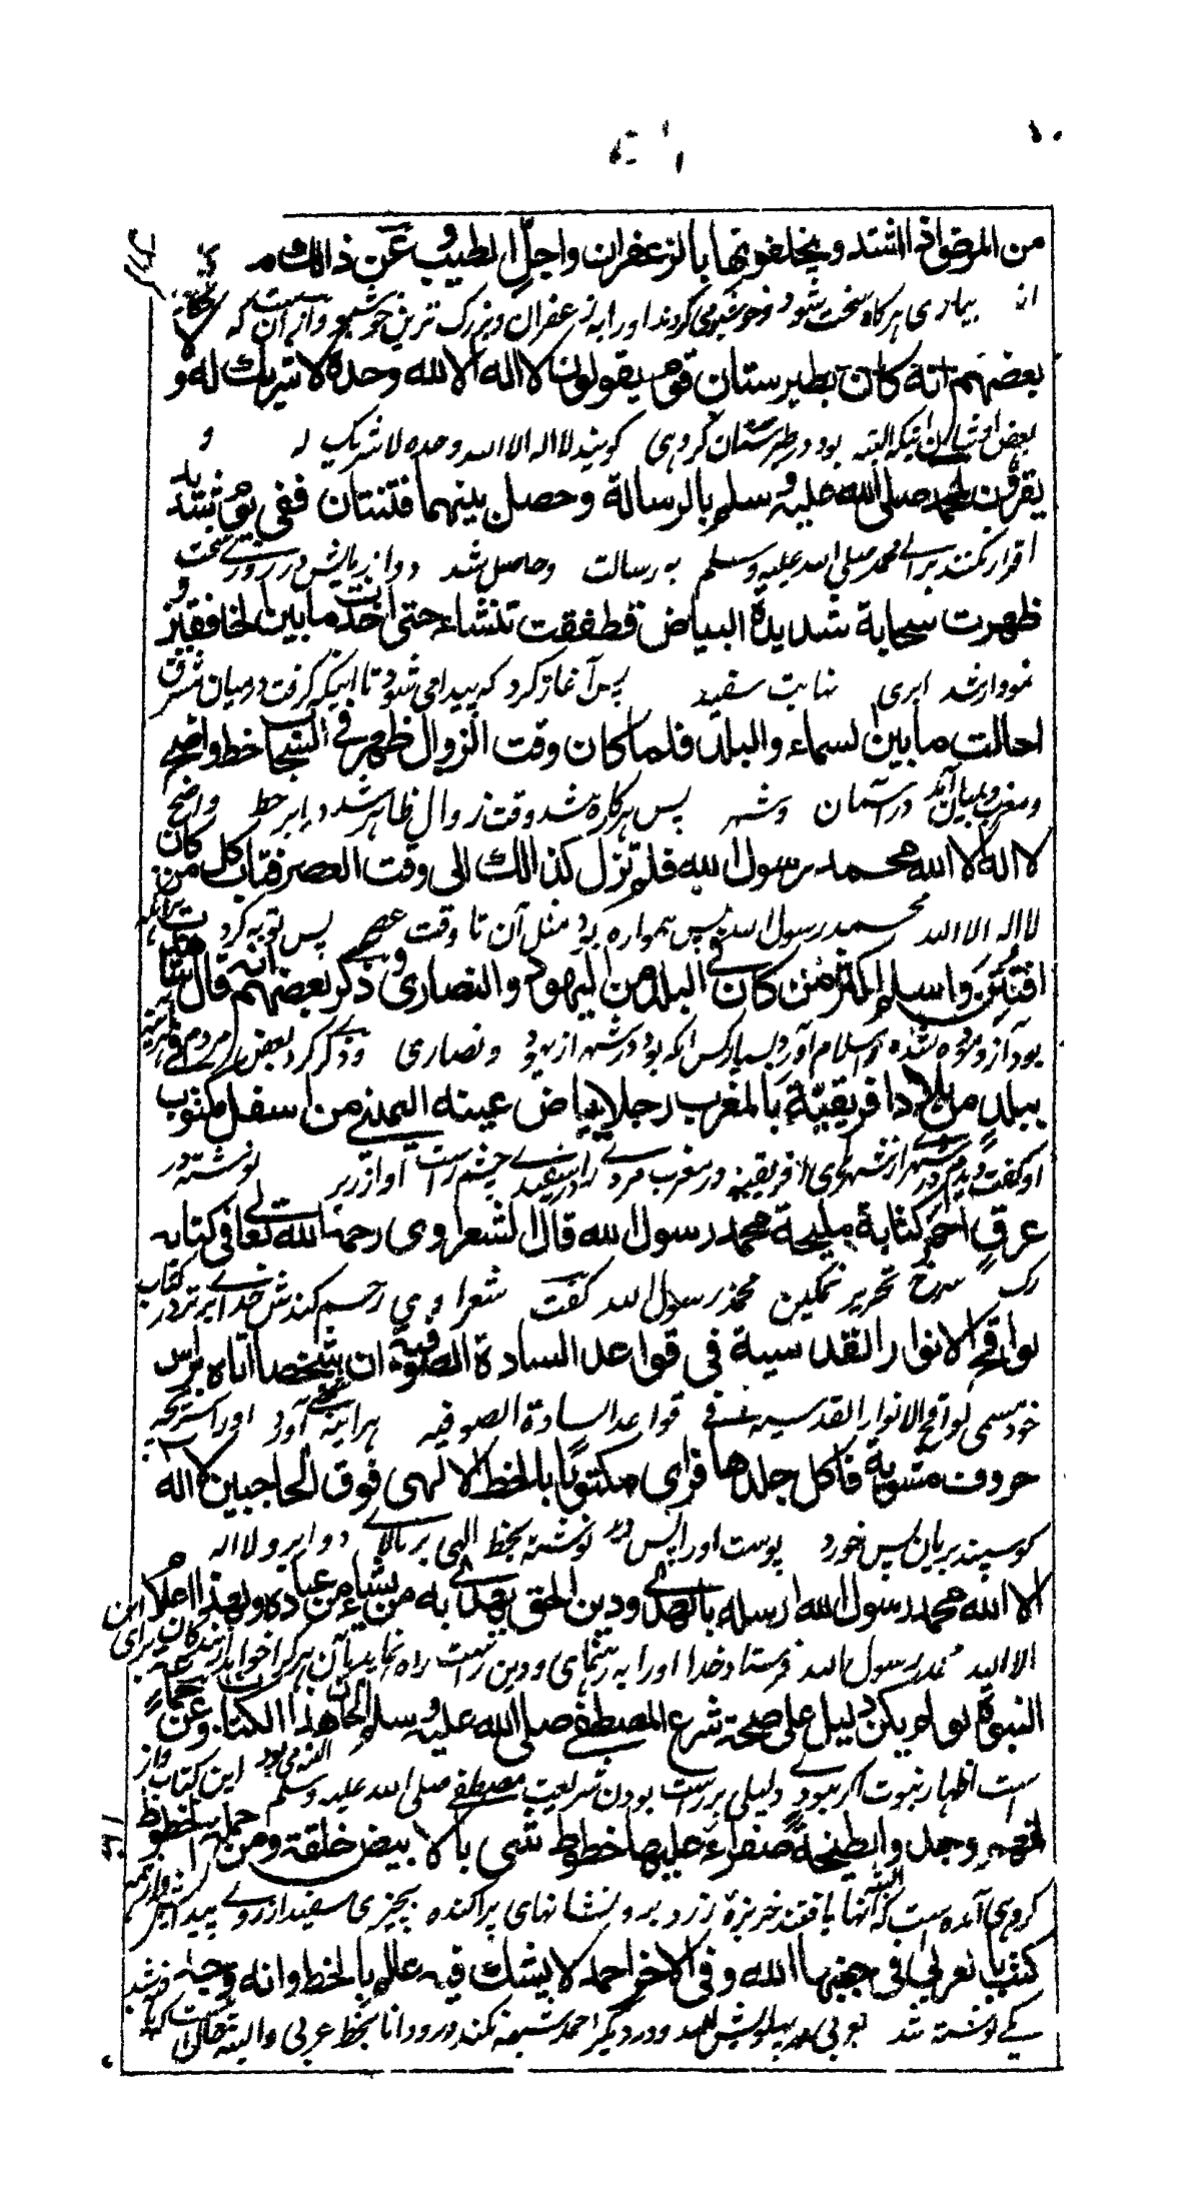 من المرضى اذا اشتد ويخلفونها بالزعفران واجل الطيوب وعن ذالك
بيماري هرگاه سخت شود و خوشبو مي كردند اورا بزعفران و بزرگ ترين خوشبو و از آن كه
بعضهم انه كان بطبرستان قوم يقولون لا اله الا الله وحده لا شريك له و
بعض ايشان اينكه البته بود در طبرستان گروهي گويند لا اله الا الله وحده لا شريك له و
يقرون لمحمد صلى الله عليه وسلم بالرسالة وحصل بينهما فتنتان ففي يوم شديد
اقرار نكنند براے محمد صلي الله عليه وسلم به رسالت وحاصل شد دو آزمايش در روزے سخت
ظهرت سحابة شديدة البياض فطفقت تنشاء حتى اخذت ما بين الخافقين و
نمودار شد ابرى نهايت سفيد پس آغاز كرد كه پيدا مي شود تا اينكه گرفت درميان مشرق
احالت ما بين السماء والبلد فلما كان وقت الزوال ظهر في السحاب خط واضح
ومغرب در آسمان وشهر پس هرگاه شد وقت زوال ظاهر شد در ابر خط واضح
لا اله الا الله محمد رسول الله فلم تزل كذالك الى وقت العصر فتاب كل من كان
لا اله الا الله محمد رسول الله پس همواره بود مثل آن تا وقت عصر پس توبه كرد
افتتن واسلم اكثر من كان في البلد من اليهود والنصارى وذكر بعضهم انه قال
اسلام آورد بسيار كس كه بود در شهر از يهود ونصارى وذكر كرد بعض مردم
ببلد من بلاد افريقية بالمغرب رجلا ببياض عينه اليمنے من اسفل مكتوب
او گفت ديدم در شهرے از شهرهاى افريقيه در مغرب مردے را در سفيدے چشم راست او از زير نوشته در
عرق احمر كتابة مليحة محمد رسول الله قال الشعراوى رحمه الله تعالى في كتابه
رگ سرخ تحرير نمكين محمد رسول الله گفت شعراوي رحم كندش خداے برتر در كتاب
لواقح الانوار القدسية في قواعد السادة الصوفية ان شخصا اتاه براس
خود مسمى لواقح الانوار القدسيه في قواعد السادة الصوفيه هرآئينه شخصے آورد اورا سر
خروف مشوية فاكل جلدها فراى مكتوبا بالخط الالهى فوق الحاجبين لا اله
گوسپند بريان پس خورد پوست اورا پس ديد نوشته بخط الهي بر بالاے دو ابرو لا اله
الا الله محمد رسول الله ارسله بالهدى ودين الحق يهدى به من يشاء من عباده وبهذا
الا الله محمد رسول الله فرستاد خدا اورا به رهنماى ودين راست راه نمايد بآن هركرا خواهد از بندگان
النبوة لو لم يكن دليل على صحة شرع المصطفے صلى الله عليه وسلم الا هذا الكتاب وعن
است اظهار نبوت اگر نبودے دليلى بر راست بودن شريعت مصطفے صلى الله عليه وسلم اين كتاب واز
انهم وجدوا بطيخة صفراء عليها خطوط شتى بالابيض خلقة ومن جملة الخطوط
گروهي آمده ست كه البته آنها يافتند خربزهٔ زرد برو نشانهاى پراكنده بچيزى سفيد از روے پيدايش
كتب بالعربى في جنبها الله وفي الاخر احمد لا يشك فيه عالم بالخط وانه وجد
يكے نوشته شد بعربى بر پهلويش الله ودر ديگر احمد شبهه نكند درو دانا بخط عربى والبته